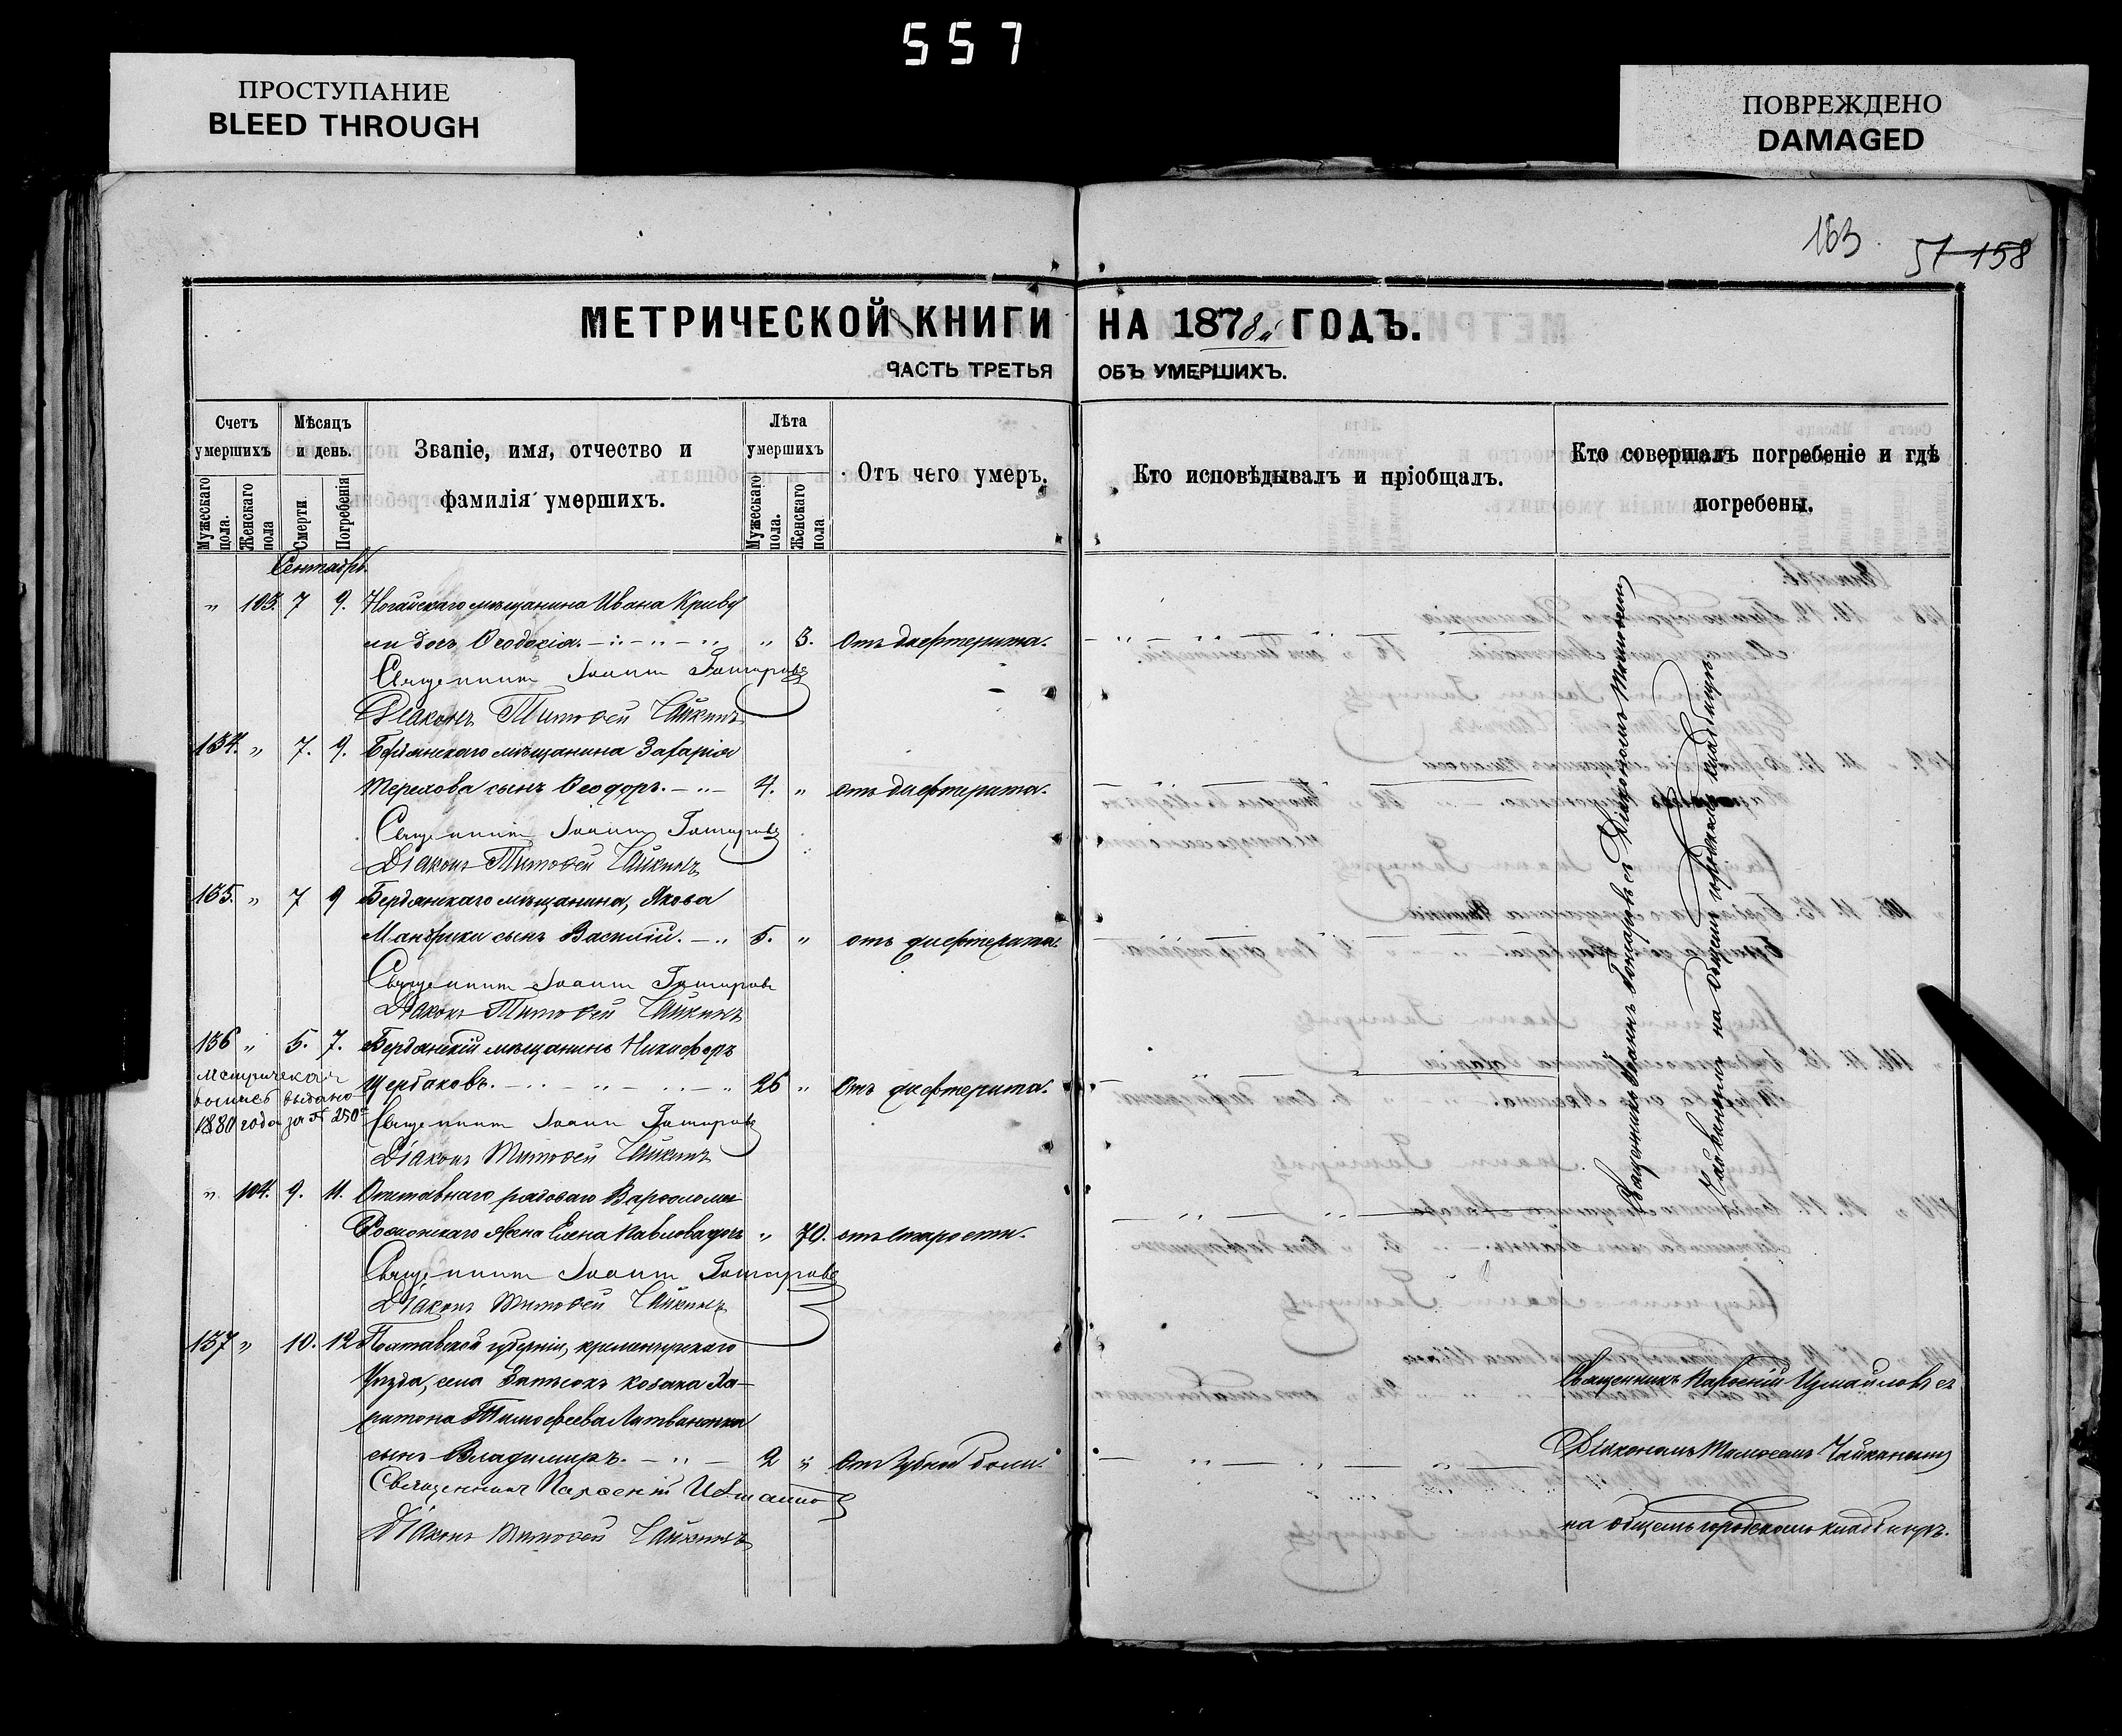 557
ПРОСТУПАНИЕ
BLEED THROUGH
ПОВРЕЖДЕНО
DAMAGED
163.
57 158
МЕТРИЧЕСКОЙ КНИГИ НА 1878й ГОДЪ.
ЧАСТЬ ТРЕТЬЯ ОБЪ УМЕРШИХЪ.
Счетъ умершихъ
Мужескаго пола.
Женскаго пола
Мѣсяцъ и день.
Смерти
Погребенія
Званіе, имя, отчество и
фамилія умершихъ.
Лѣта умершихъ
Мужескаго пола.
Женскаго пола
Отъ чего умеръ.
Кто исповѣдывалъ и пріобщалъ.
Кто совершалъ погребеніе и гдѣ
погребены.
Сентябрь.
" 103. 7 9. Ногайскаго мѣщанина Ивана
дочь Ѳеодосія. " 3. Отъ дифтерита.
Священникъ Іоаннъ Гончаровъ
Діаконъ Тимоѳей Чайкинъ
134. " 7. 9. Бердянскаго мѣщанина Захарія
Терехова сынъ Ѳеодоръ. 4. " отъ дифтерита.
Священникъ Іоаннъ Гончаровъ
Діаконъ Тимоѳей Чайкинъ
135. " 7 9 Бердянскаго мѣщанина, Якова
сынъ Василій. 5. " отъ дифтерита.
Священникъ Іоаннъ Гончаровъ
Діаконъ Тимоѳей Чайкинъ
136 " 5. 7. Бердянскій мѣщанинъ Никифоръ
Щербаковъ. 26 " Отъ дифтерита.
Метрическая
выпись выдана
1880 года за № 250
Священникъ Іоаннъ Гончаровъ
Діаконъ Тимоѳей Чайкинъ
" 104. 9. 11. Отставнаго рядоваго
жена Елена Павлова дочь " 70. отъ старости.
Священникъ Іоаннъ Гончаровъ
Діаконъ Тимоѳей Чайкинъ
137 " 10. 12 Полтавской губерніи, кременчугскаго
Уѣзда, села козака Ха-
ритона Тимофеева Литвиненка
сынъ Владимиръ. 2 " Отъ зубной боли.
Священникъ Парѳеній
Діаконъ Тимоѳей Чайкинъ
Священникъ Іоаннъ Гончаровъ съ Діакономъ Тимоѳеемъ
Чайкинымъ на общемъ городскомъ кладбищѣ.
Священникъ Парѳеній съ
Діакономъ Тимоѳеемъ Чайкинымъ
на общемъ городскомъ кладбищѣ.